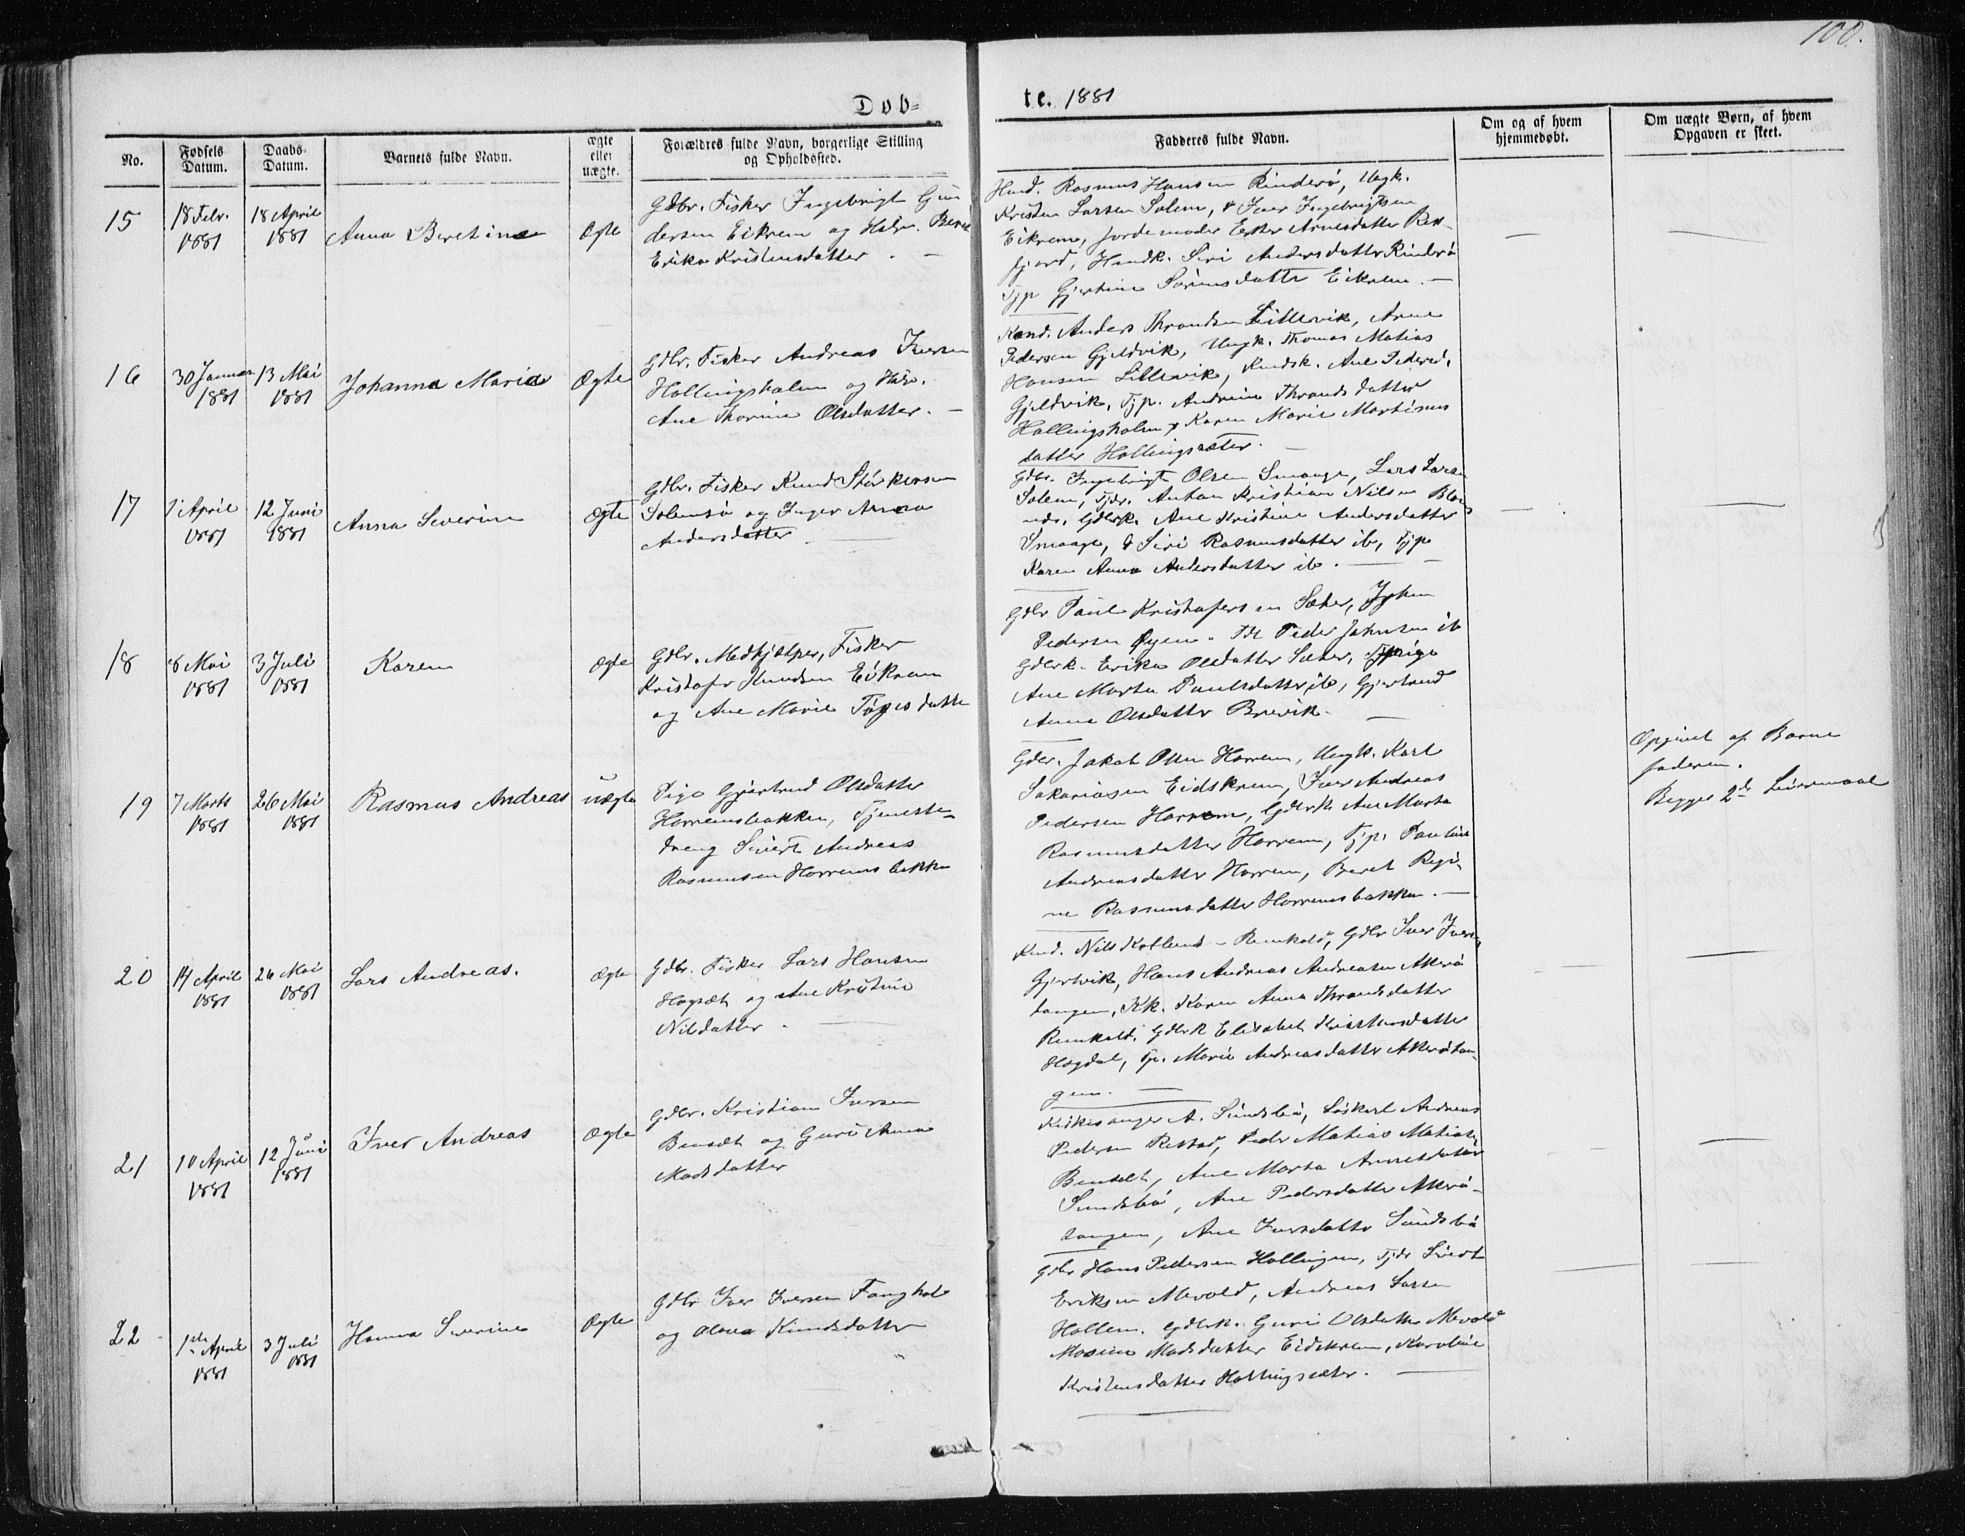 100.
Døb-
te. 1881
No.
Fødsels
Datum.
Daabs-
Datum.
Barnets fulde Navn.
ægte
eller
uægte.
Forældres fulde Navn, borgerlige Stilling
og Opholdssted.
Fadderes fulde Navn.
Om og af hvem
hjemmedøbt.
Om uægte Børn, af hvem
Opgaven er skeet.
15
18 Febr.
1881
18 April
1881
Anna Beretine
Ægte
Gdbr. Fisker Ingebrigt Gun
dersen Eikrem og Hstr. Beret
Erika Kristensdatter. —
Hmd. Rasmus Hansen Rinderø, Ungk.
Kristen Larsen Solem, & Iver Ingebrigtsen
Eikrem, Jordemoder Ester Arnesdatter
fjord, Hmdk. Siri Andersdatter Rinderø
Tjp Gjertine Sørensdatter Eikrem. —
16
30 Januar
1881
13 Mai
1881
Johanna Maria
Ægte
Gdbr. Fisker Andreas Iversen
Hollingsholm og Hstr.
Ane Thorine Olsdatter. —
Kmd. Anders Throndsen Lillevik, Arne
Pedersen Gjeldvik, Ungk. Thomas Matias
Hansen Lillevik, Kmdsk. Ane Pedersd.
Gjeldvik, Tjp. Andrine Thronds datter
Hollingsholm & Karen Marie Martinus
datter Hollingsæter. —
17
1 April
1881
12 Juni
1881
Anna Severine
Ægte
Gdbr. Fisker Knud Størkersen
Solemsø og Inger Anna
Andersdatter
Gdbr. Ingebrigt Olsen Smaage, Lars Larsen
Solem, Tjdr. Anton Kristian Nilsen
Gdbrk. Ane Kristine Andersdatter
Smaage, & Siri Rasmusdatter ib, Tjp
Karen Anna Andersdatter ib. —
18
8 Mai
1881
3 Juli
1881
Karen
Ægte
Gdbr. Medhjælper, Fisker
Kristofer Knudsen Eikrem
og Ane Marie datter
Gdbr Paul Kristofersen Sæter,
Pedersen Øyen. Peder Johnsen ib
Gdbrk. Erika Olsdatter Sæter, Tjpige
Ane Marta Paulsdatter ib, Gjertrud
Anna Olsdatter Brevik. —
19
7 Marts
1881
26 Mai
1881
Rasmus Andreas
uægte
Pige Gjertrud Olsdatter
Horremsbakken, Tjeneste-
dreng Sivert Andreas
Rasmussen Horremsbakken
Gdbr. Jakob Olsen Horrem, Ungk. Karl
Sakariasen Eidskrem, Iver Andreas
Pedersen Horrem, Gdbrk Ane Marta
Rasmusdatter Horrem, Tjp. Pauline
Andreasdatter Horrem, Beret Regi-
ne Rasmusdatter Horremsbakken. —
Opgivet af Barne
faderen.
Begges 2det Leiermaal
20
14 April
1881
26 Mai
1881
Lars Andreas.
Ægte
Gdbr. Fisker Lars Hansen
Hogsæt og Ane Kristine
Nilsdatter. —
Kmd. Nils Kolland — Gdbr Iver Iversen
Gjertvik, Hans Andreas Andreasen Akerø
tangen, Kk. Karen Anna Throndsdatter
Gdbrk Elisabet Kristensdatter
Hogdal, Tp. Marie Andreasdatter Akerøtan-
gen. —
21
10 April
1881
12 Juni
1881
Iver Andreas
Ægte
Gdbr. Kristian Iversen
Bensæt og Guri Anna
Madsdatter
Kirkesanger A. Sundsbø, Andreas
Pedersen Peder Matias Matiasen
Ane Marta Arnesdatter
Sundsbø, Ane Pedersdatter Akerø-
tangen, Ane Iversdatter Sundsbø
22
1ste April
1881
3 Juli
1881
Hanna Severine
Ægte
Gdbr Iver Iversen Tanghol
og Olava Knudsdatter
Gdbr Hans Pedersen Hollingen, Tjdr Sivert
Eriksen Mevold, Andreas Larsen
Hollen. Gdbrk. Guri Olsdatter Mevold
Maxine Madsdatter Eidskrem, Karoline
Kristensdatter Hollingsæter. —